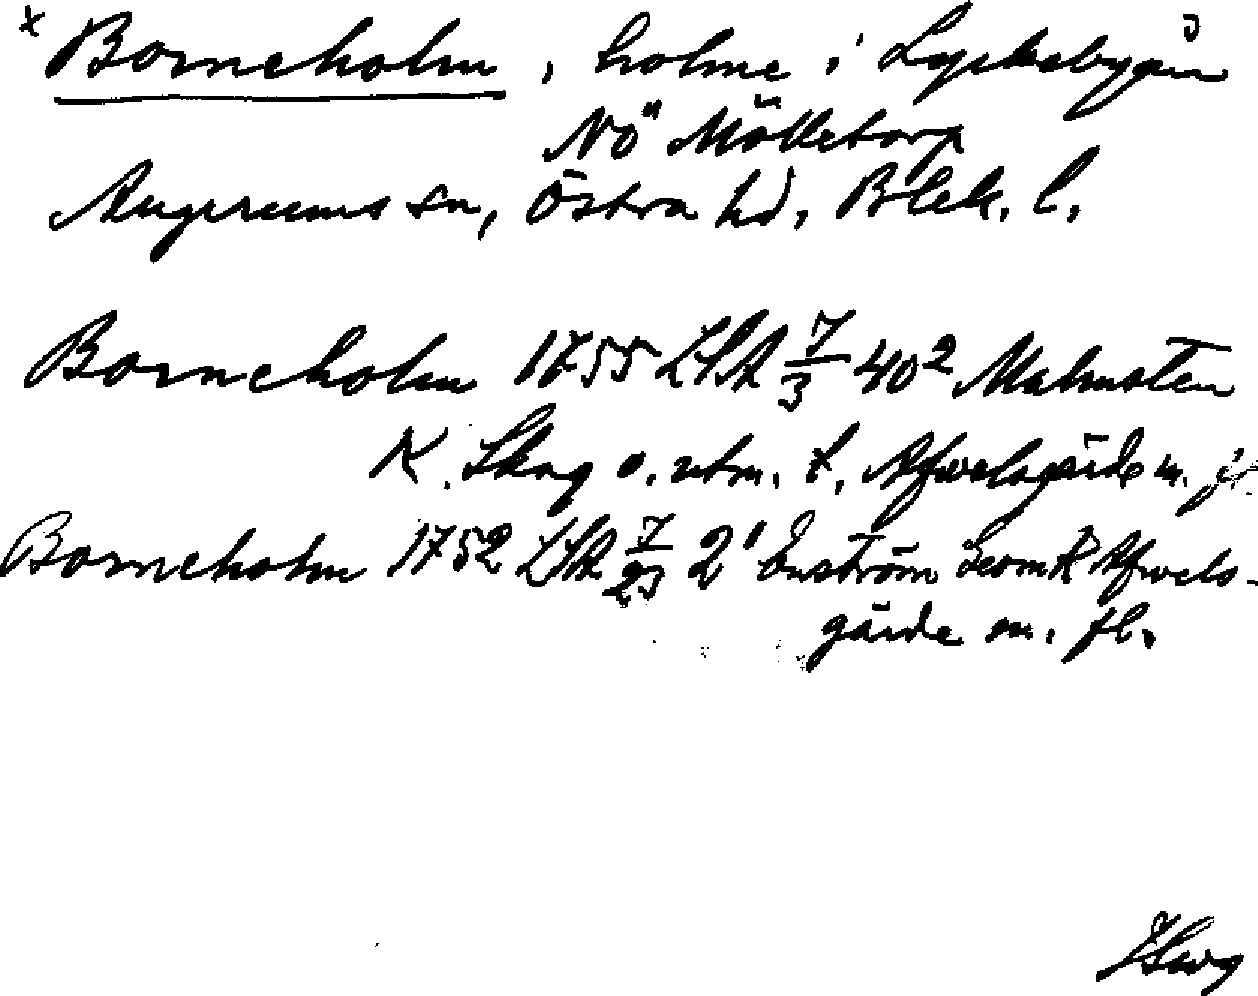 * Borneholm, holme i Lyckebyån
NÖ Mölletorp
Augerums sn, Östra hd, Blek. l.
Borneholm 1755 LSA 7/3 40² Malmsten
K. Skog o. utm. t. Afwelsgärde m. fl.
Borneholm 1752 LSA 7/23 2¹ Enström GeomK Afwels-
gärde m. fl.